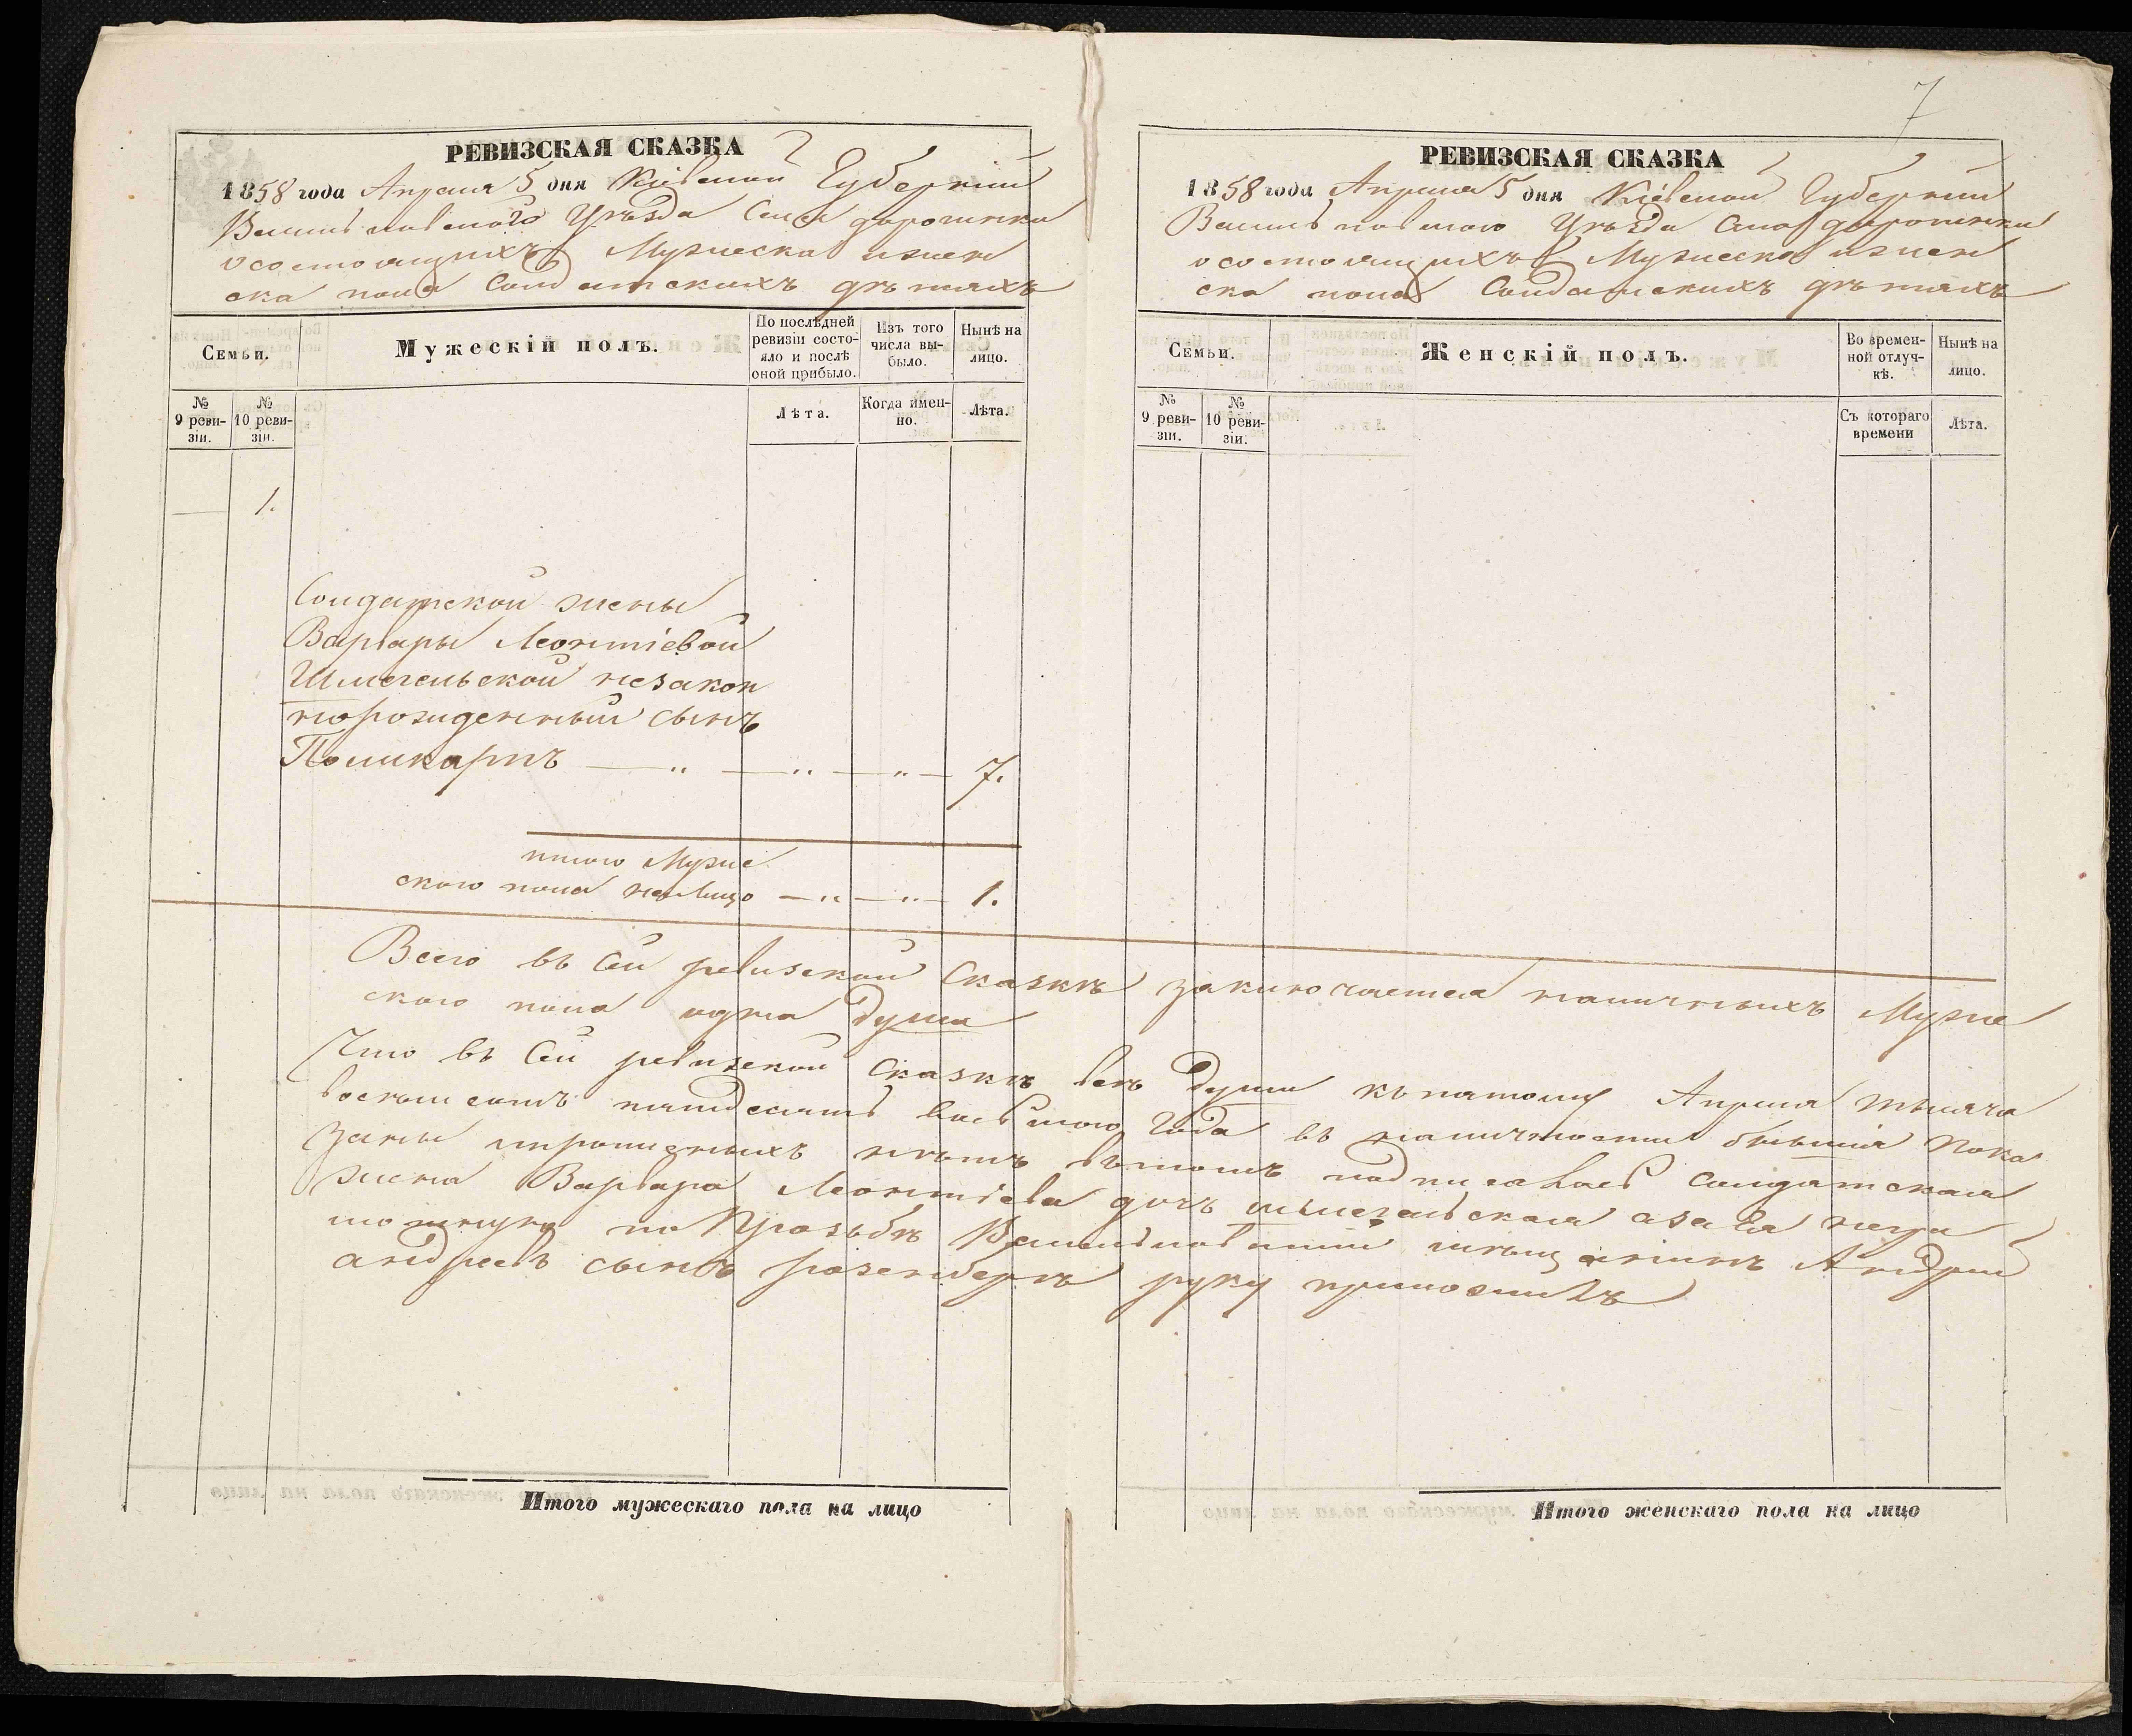 7
РЕВИЗСКАЯ СКАЗКА
1858 года Апреля 5 дня Кіевской Губерніи
Васильковского Уѣзда Села дорогинки
о состоящихъ Мужеска и жен
ска пола Солдатскихъ дѣтяхъ
Семьи.
Мужескій полъ.
По послѣдней
ревизіи состо-
яло и послѣ
оной прибыло.
Изъ того
числа вы-
было.
Нынѣ на
лицо.
№
9 реви-
зіи.
№
10 реви-
зіи.
Лѣта.
Когда имен-
но.
Лѣта.
1.
Солдатской жены
Варвары Леонтіевой
Шмегельской незакон
норожденный сынъ
Поликарпъ — „ — „ — „ — 7.
итого Муже
ского пола налицо — „ — „ — 1.
РЕВИЗСКАЯ СКАЗКА
1858 года Апреля 5 дня Кіевской Губерніи
Васильковского Уѣзда Села дорогинки
о состоящихъ Мужеска и жен
ска пола Солдатскихъ дѣтяхъ
Семьи.
Женскій полъ.
Во времен-
ной отлуч-
кѣ.
Нынѣ на
лицо.
№
9 реви-
зіи.
№
10 реви-
зіи.
Съ котораго
времени
Лѣта.
Всего въ Сей ревизской Сказкѣ заключается наличныхъ Муже
ского пола одна душа
Что въ Сей ревизской Сказкѣ всѣ души къ пятому Апреля тысяча
восемьсотъ пятдесятъ восьмого Года въ наличности бывшія пока
заны и прописныхъ нѣтъ въ томъ подписалась Солдатская
жена Варвара Леонтіева дочь шмегельская а за Ея негра
мотную по Прозьбѣ Васильковский мѣщанинъ Андрей
андреевъ сынъ розенбергъ руку приложилъ
Итого мужескаго пола на лицо
Итого женскаго пола на лицо